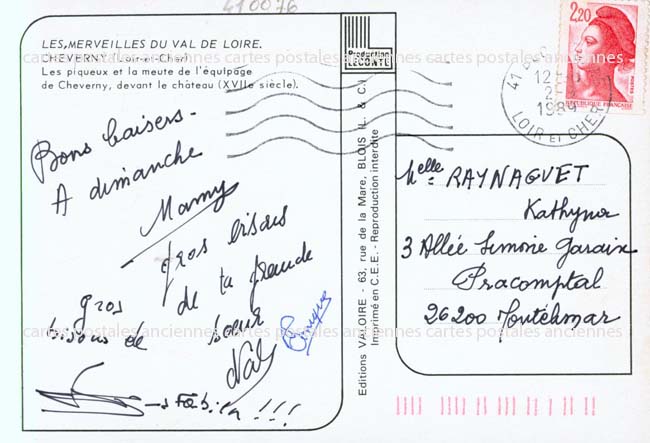 410076
LES MERVEILLES DU VAL DE LOIRE.
CHEVERNY (Loir-et-Cher)
Les piqueux et la meute de l'équipage
de Cheverny, devant le château (XVIIe siècle).
Production
LECONTE
2,20
REPUBLIQUE FRANÇAISE
41
12
1989
LOIR ET CHER
Bons baisers -
A dimanche
Mamy
gros bisous
de ta grande
soeur
gros
bisous de
Fabrica !!!
Editions VALOIRE - 63, rue de la Mare, BLOIS (L. & C.)
Imprimé en C.E.E. - Reproduction interdite
Melle RAYNAGUET
Kathyna
3 Allée Simone Garaix
Pracomptal
26200 Montélimar
cartes postales anciennes cartes postales anciennes cartes postales anciennes
cartes postales anciennes cartes postales anciennes cartes postales anciennes